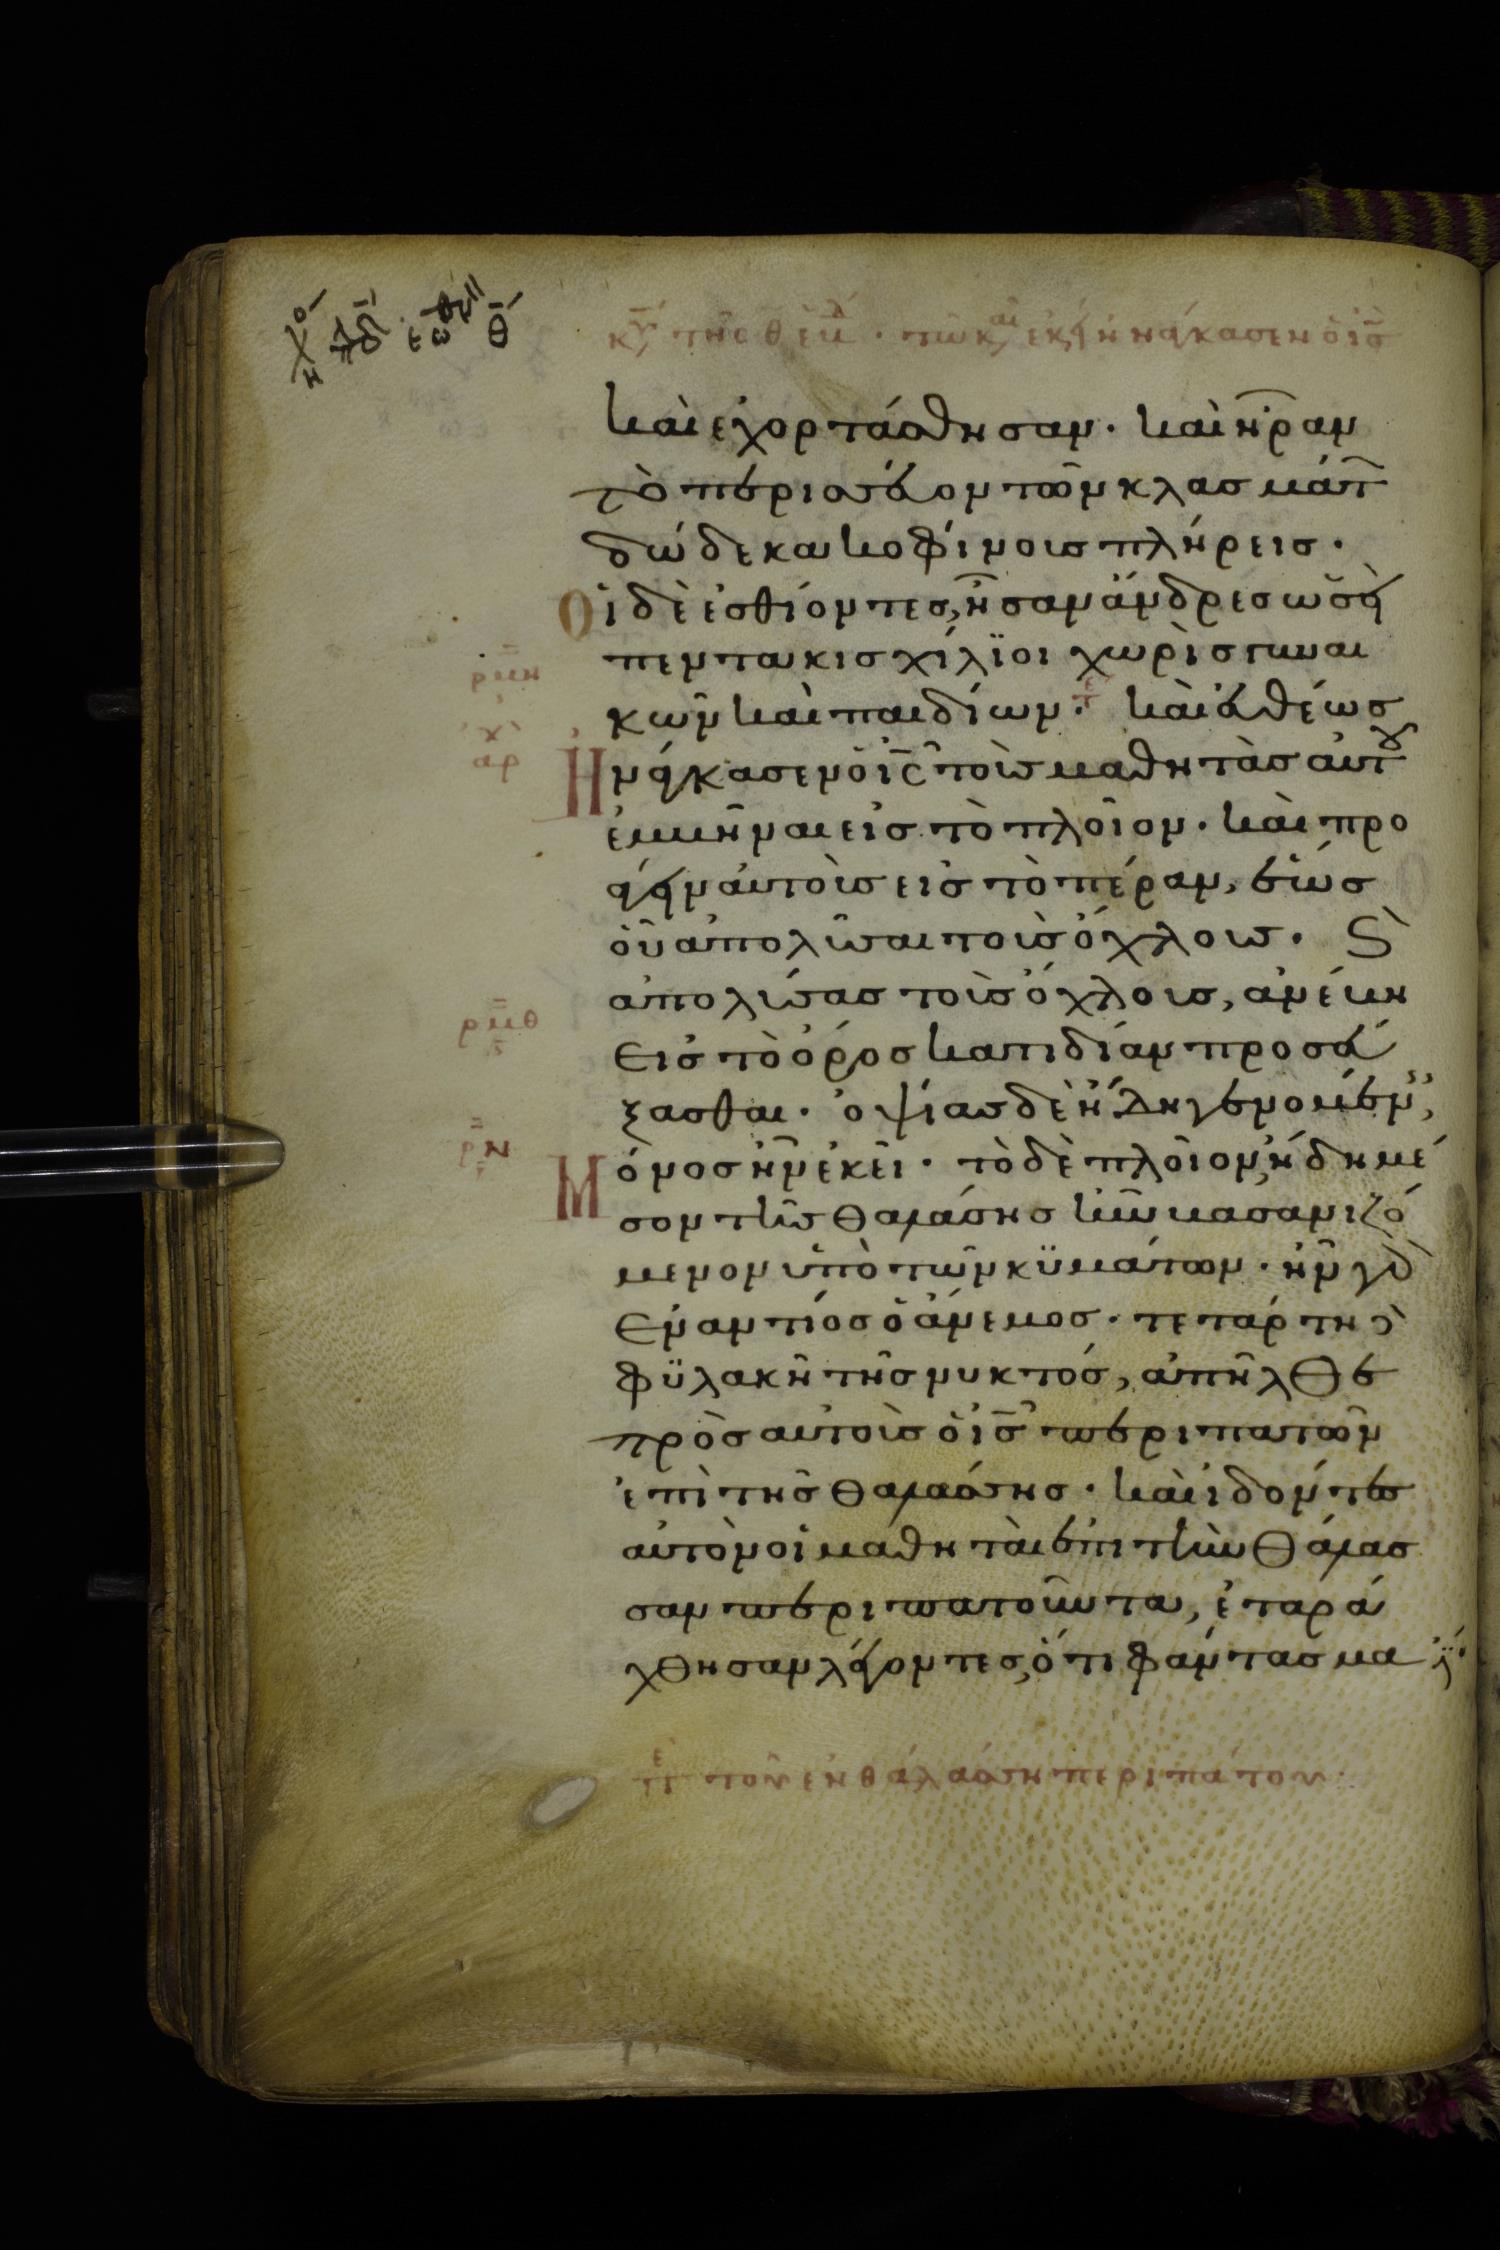 κυ τῆς θ ἑβδ · τῷ κ, ἐκ, ἠνάγκασεν ὁ ις
καὶ ἐχορτάσθησαν · καὶ ἦραν
τὸ περισσεῦον τῶν κλασμάτ
δώδεκα κοφίνους πλήρεις ·
Οἱ δὲ ἐσθίοντες, ἦσαν ἄνδρες ὡσεὶ
πεντακισχίλϊοι χωρὶς γυναι
ρμη
κῶν καὶ παιδίων · τε καὶ εὐθέως
αρχ
Ηνάγκασεν ὁ ις τοὺς μαθητὰς αὐτοῦ
ἐμβῆναι εἰς τὸ πλοῖον · καὶ προ
άγειν αὐτοὺς εἰς τὸ πέραν, ἕως
οὗ ἀπολῦσαι τοὺς ὄχλους · ϛ
ἀπολύσας τοὺς ὄχλους, ἀνέβη
ρμθ
εἰς τὸ ὄρος κατιδίαν προσεύ
ξασθαι · ὀψίας δὲ ἤδη γενομένης,
ρν
Μόνος ἦν ἐκεῖ · τὸ δὲ πλοῖον, ἤδη μέ
σον τῆς θαλάσσης ἦν βασανιζό
μενον ὑπὸ τῶν κϋμάτων · ἦν γὰρ
ἐναντίος ὁ ἄνεμος · τετάρτη δὲ
φϋλακῆ τῆς νυκτός, ἀπῆλθε
πρὸς αὐτοὺς ὁ ις περιπατῶν
ἐπὶ τῆς θαλάσσης · καὶ ἰδόντες
αὐτὸν οἱ μαθηταὶ ἐπι τὴν θάλασ
σαν περιπατοῦντα, ἐταρά
χθησαν λέγοντες, ὅτι φάντασμά ἐ
πε τοῦ ἐν θαλάσση περιπάτου ·